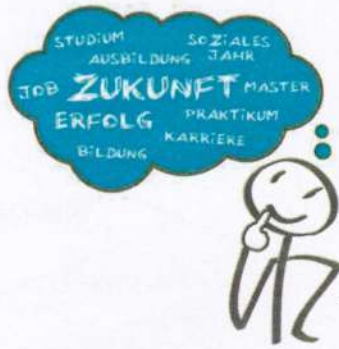 STUDIUM
SOZIALES JAHR
AUSBILDUNG
JOB ZUKUNFT MASTER
ERFOLG PRAKTIKUM
KARRIERE
BILDUNG